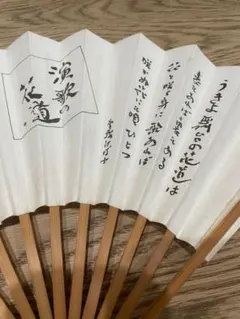 うきよ舞台の花道は
表もあれば裏もある
花と咲く身に歌あれば
咲かぬ花にも唄ひとつ
演歌の
花道